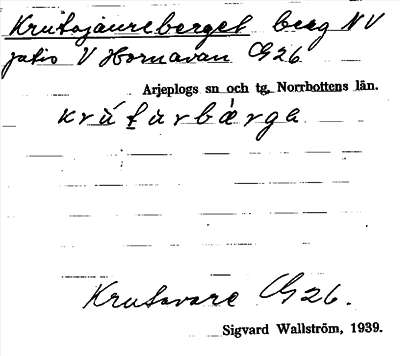 Krutojaureberget berg NV
jakis V Hornavan G26
Arjeplogs sn och tg, Norrbottens län.
krút̠urbǻrga
Krutavare G26.
Sigvard Wallström, 1939.